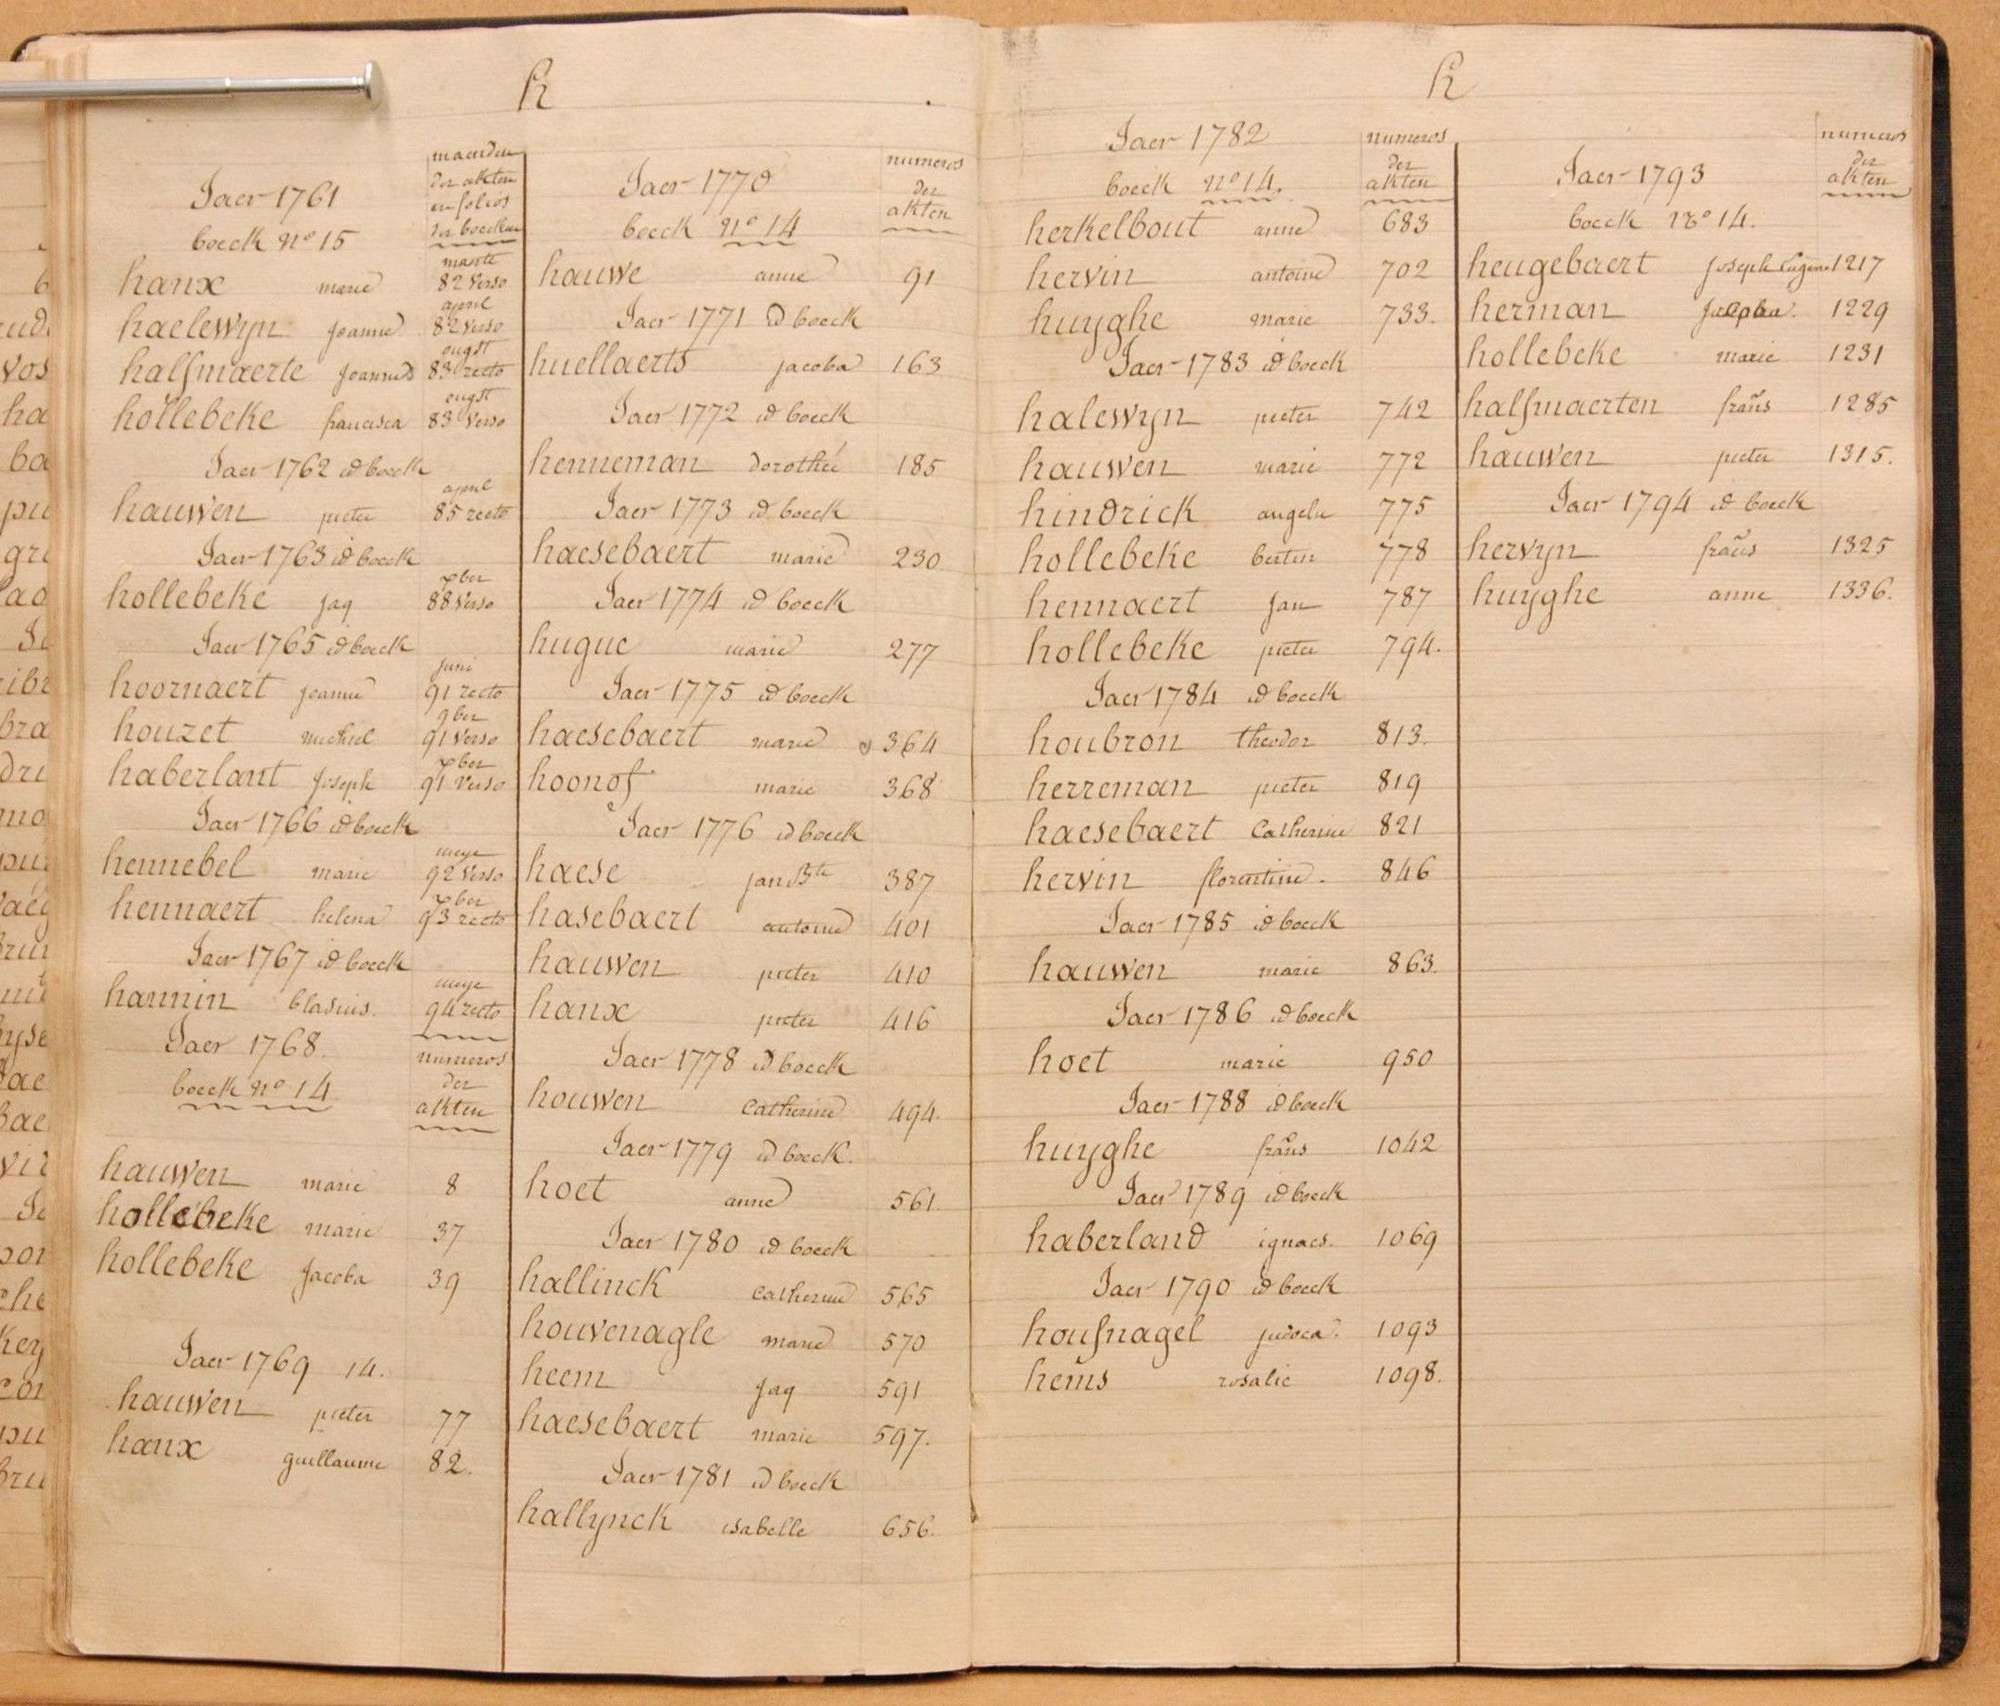 h
Jaer 1761
boeck nº 15
maenden
der akten
en folios
der boecken
hanx marie marte 82 verso
haelewyn Joanne april 82 verso
halfmaerte Joannes ougst 83 recto
hollebeke francisca ougst 83 verso
Jaer 1762 id boeck
hauwen pieter april 85 recto
Jaer 1763 id boeck
hollebeke jaq xber 88 verso
Jaer 1765 id boeck
hoornaert joanne juni 91 recto
houzet michiel 9ber 91 verso
haberlant Joseph xber 91 verso
Jaer 1766 id boeck
hennebel marie meye 92 verso
hennaert helena xber 93 recto
Jaer 1767 id boeck
hannin blasius. meye 94 recto
Jaer 1768.
boeck nº 14
numeros
der
akten
hauwen marie 8
hollebeke marie 37
hollebeke Jacoba 39
Jaer 1769 14.
hauwen pieter 77
hanx guillaume 82.
Jaer 1770
boeck nº 14
numeros
der
akten
hauwe anne 91
Jaer 1771 id boeck
huellaerts jacoba 163
Jaer 1772 id boeck
henneman dorothée 185
Jaer 1773 id boeck
haesebaert marie 230
Jaer 1774 id boeck
hugue marie 277
Jaer 1775 id boeck
haesebaert marie 364
hoonof marie 368
Jaer 1776 id boeck
haese jan Bte 387
hasebaert antoine 401
hauwen pieter 410
hanx pieter 416
Jaer 1778 id boeck
houwen Catherine 494.
Jaer 1779 id boeck.
hoet anne 561.
Jaer 1780 id boeck
hallinck Catherine 565
houvenagle marie 570
heem jaq 591
haesebaert marie 597.
Jaer 1781 id boeck
hallynck isabelle 656.
h
Jaer 1782
boeck nº 14.
numeros
der
akten
herkelbout anne 683
hervin antoine 702
huyghe marie 733.
Jaer 1783 id boeck
halewyn pieter 742
hauwen marie 772
hindrick angelu 775
hollebeke bertin 778
hennaert Jan 787
hollebeke pieter 794.
Jaer 1784 id boeck
houbron theodor 813.
herreman pieter 819
haesebaert Catherine 821
hervin florentine. 846
Jaer 1785 id boeck
hauwen marie 863.
Jaer 1786 id boeck
hoet marie 950
Jaer 1788 id boeck
huyghe frãns 1042
Jaer 1789 id boeck
haberland ignaes. 1069
Jaer 1790 id boeck
houfnagel judoca. 1093
hems rosalie 1098.
Jaer 1793
boeck nº 14.
numeros
der
akten
heugebaert Joseph Eugene 1217
herman Josepha. 1229
hollebeke marie 1231
halfmaerten frãns 1285
hauwen pieter 1315.
Jaer 1794 id boeck
hervyn frãns 1325
huyghe anne 1336.